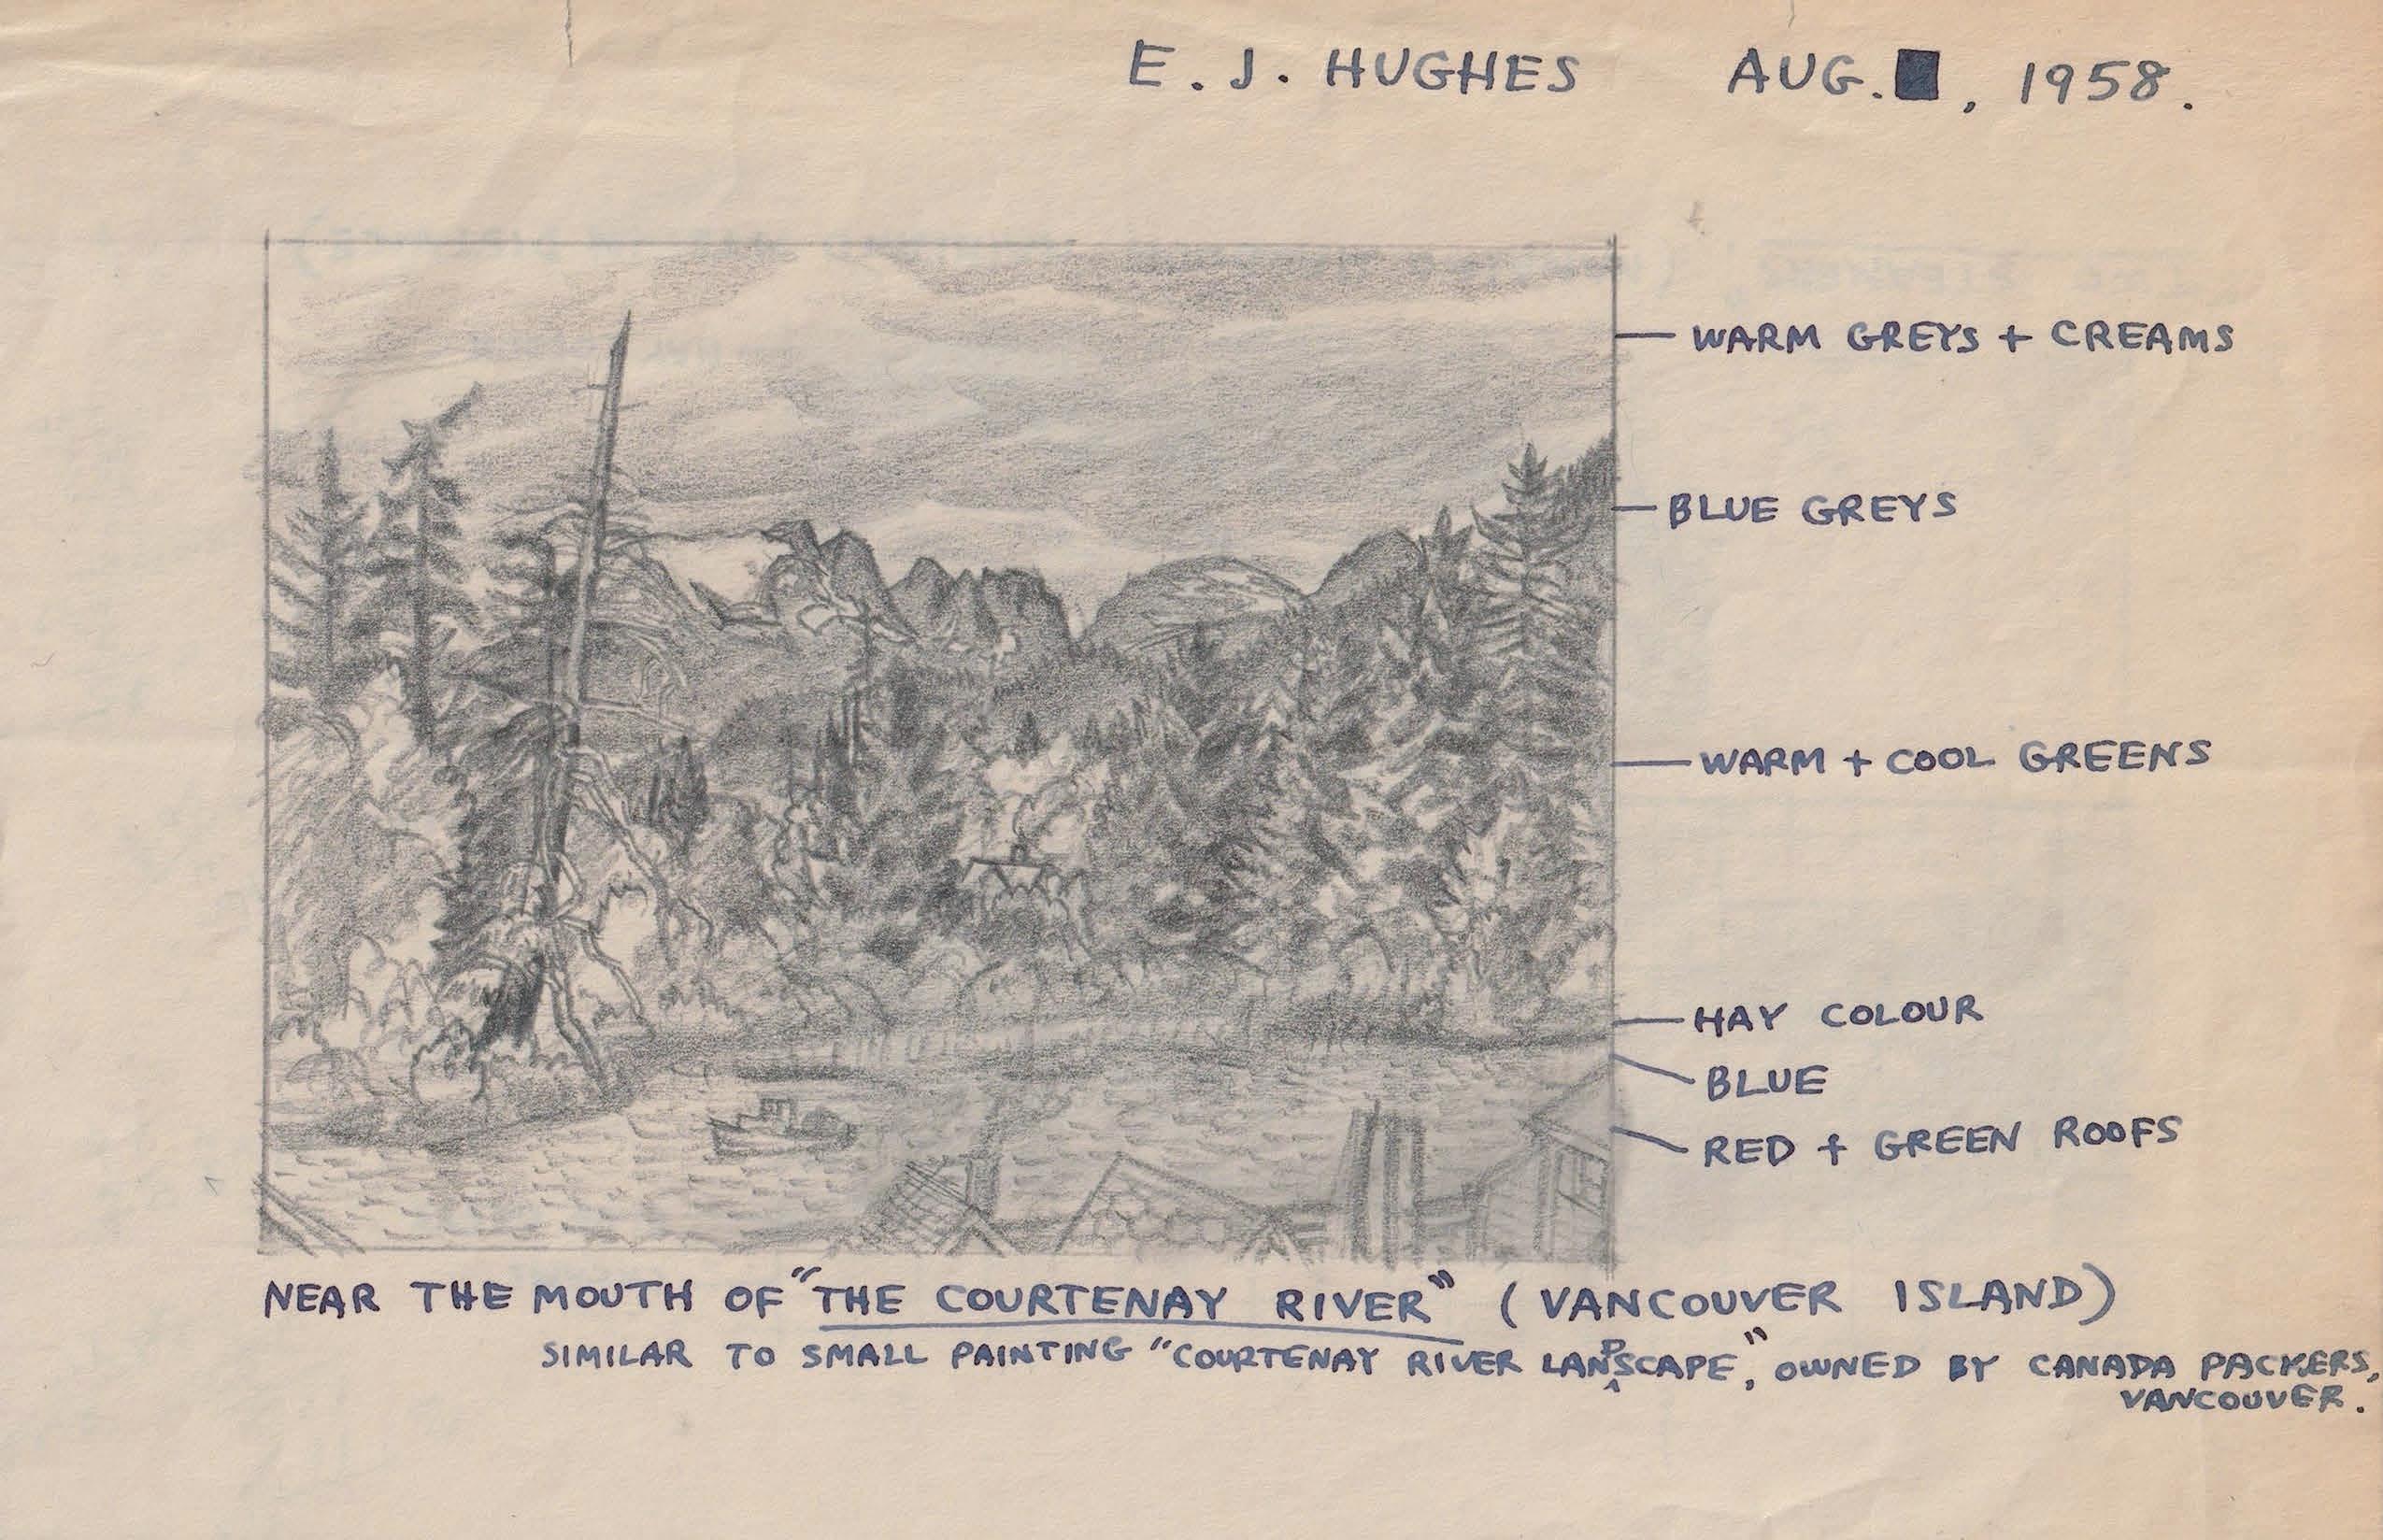 E. J. HUGHES AUG. , 1958.
WARM GREYS + CREAMS
BLUE GREYS
WARM + COOL GREENS
HAY COLOUR
BLUE
RED + GREEN ROOFS
NEAR THE MOUTH OF "THE COURTENAY RIVER" (VANCOUVER ISLAND)
SIMILAR TO SMALL PAINTING "COURTENAY RIVER LANDSCAPE", OWNED BY CANADA PACKERS,
VANCOUVER.